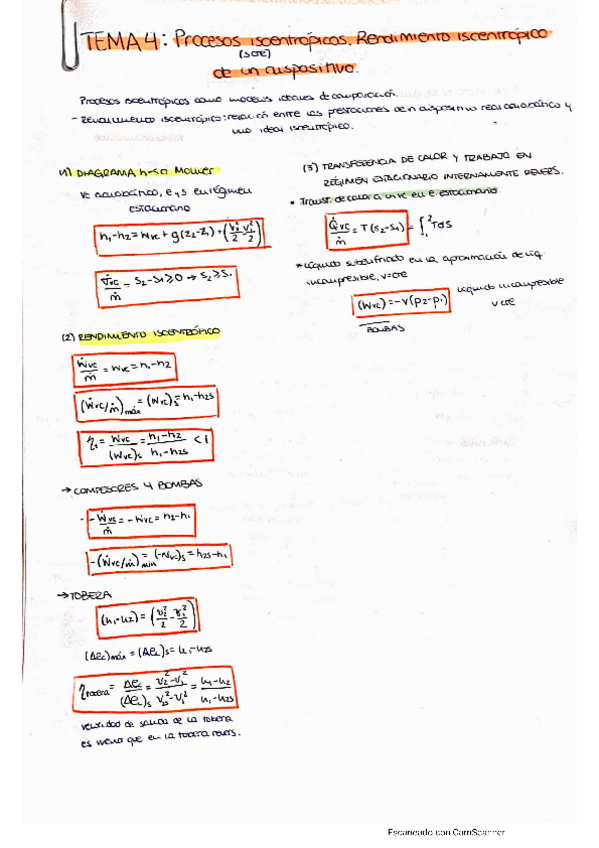 TEMA 4: Procesos isoentrópicos. Rendimiento isoentrópico
(s cte)
de un dispositivo.
Procesos isoentrópicos como modelos ideales de comparación.
- Rendimiento isoentrópico: relación entre las prestaciones de n dispositivo real adiabático y
uno ideal isentrópico.
(1) DIAGRAMA h-s o Mollier
VC adiabático, e y s en régimen
estacionario
h₁-h₂ = wvc + g(z₂-z₁) + (v₂²/2 - v₁²/2)
σ̇vc/ṁ = s₂-s₁ ≥ 0 → s₂ ≥ s₁
(2) RENDIMIENTO ISOENTRÓPICO
Ẇvc/ṁ = wvc = h₁-h₂
(Ẇvc/ṁ)máx = (wvc)s = h₁-h₂s
ηₜ = wvc/(wvc)s = h₁-h₂/h₁-h₂s < 1
→ COMPESORES Y BOMBAS
- Ẇvc/ṁ = -wvc = h₂-h₁
-(Ẇvc/ṁ)min = (-wvc)s = h₂s-h₁
→ TOBERA
(h₁-h₂) = (v₂²/2 - v₁²/2)
(Δec)máx = (Δec)s = h₁-h₂s
ηtobera = Δec/(Δec)s = v₂²-v₁²/v₂s²-v₁² = h₁-h₂/h₁-h₂s
velocidad de salida de la tobera
es menor que en la tobera revers.
(3) TRANSFERENCIA DE CALOR Y TRABAJO EN
RÉGIMEN ESTACIONARIO INTERNAMENTE REVERS.
• Transf. de calor a un vc en e. estacionario
Q̇vc/ṁ = T(s₂-s₁) = ∫₁² Tds
* Líquido subenfriado en la aproximación de líq.
incompresible, v=cte
(wvc) = -v(p₂-p₁) líquido incompresible
v cte
BOMBAS
Escaneado con CamScanner